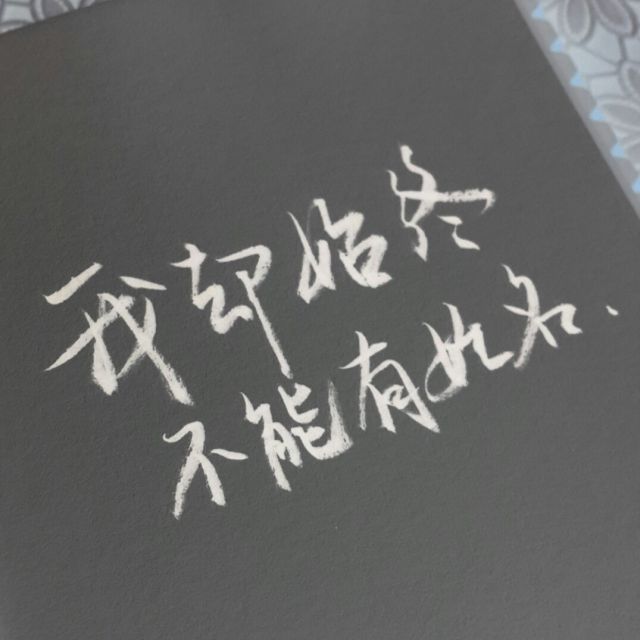 我却始终
不能有姓名.